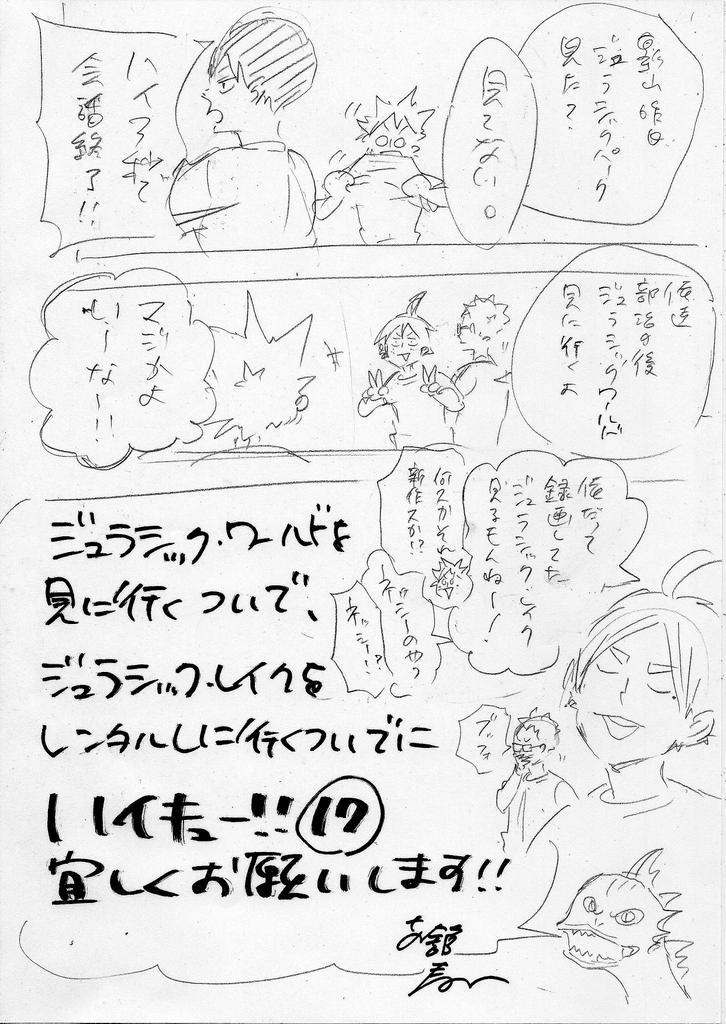 影山昨日
ジュラシックパーク
見た?
見てない。
ハイアボて
会話終了!!
俺達
部活の後
ジュラシックワールド
見に行くよ
マジかよ
いーなー!!
俺だって
録画してた
ジュラシック・レイク
見るもんねー!
何スかそれ
新作スか!?
ネッシーのやつ
ネッシー!?
ブッフォ
ジュラシック・ワールドを
見に行くついで、
ジュラシック・レイクを
レンタルしに行くついでに
ハイキュー!!⑰
宜しくお願いします!!
古舘